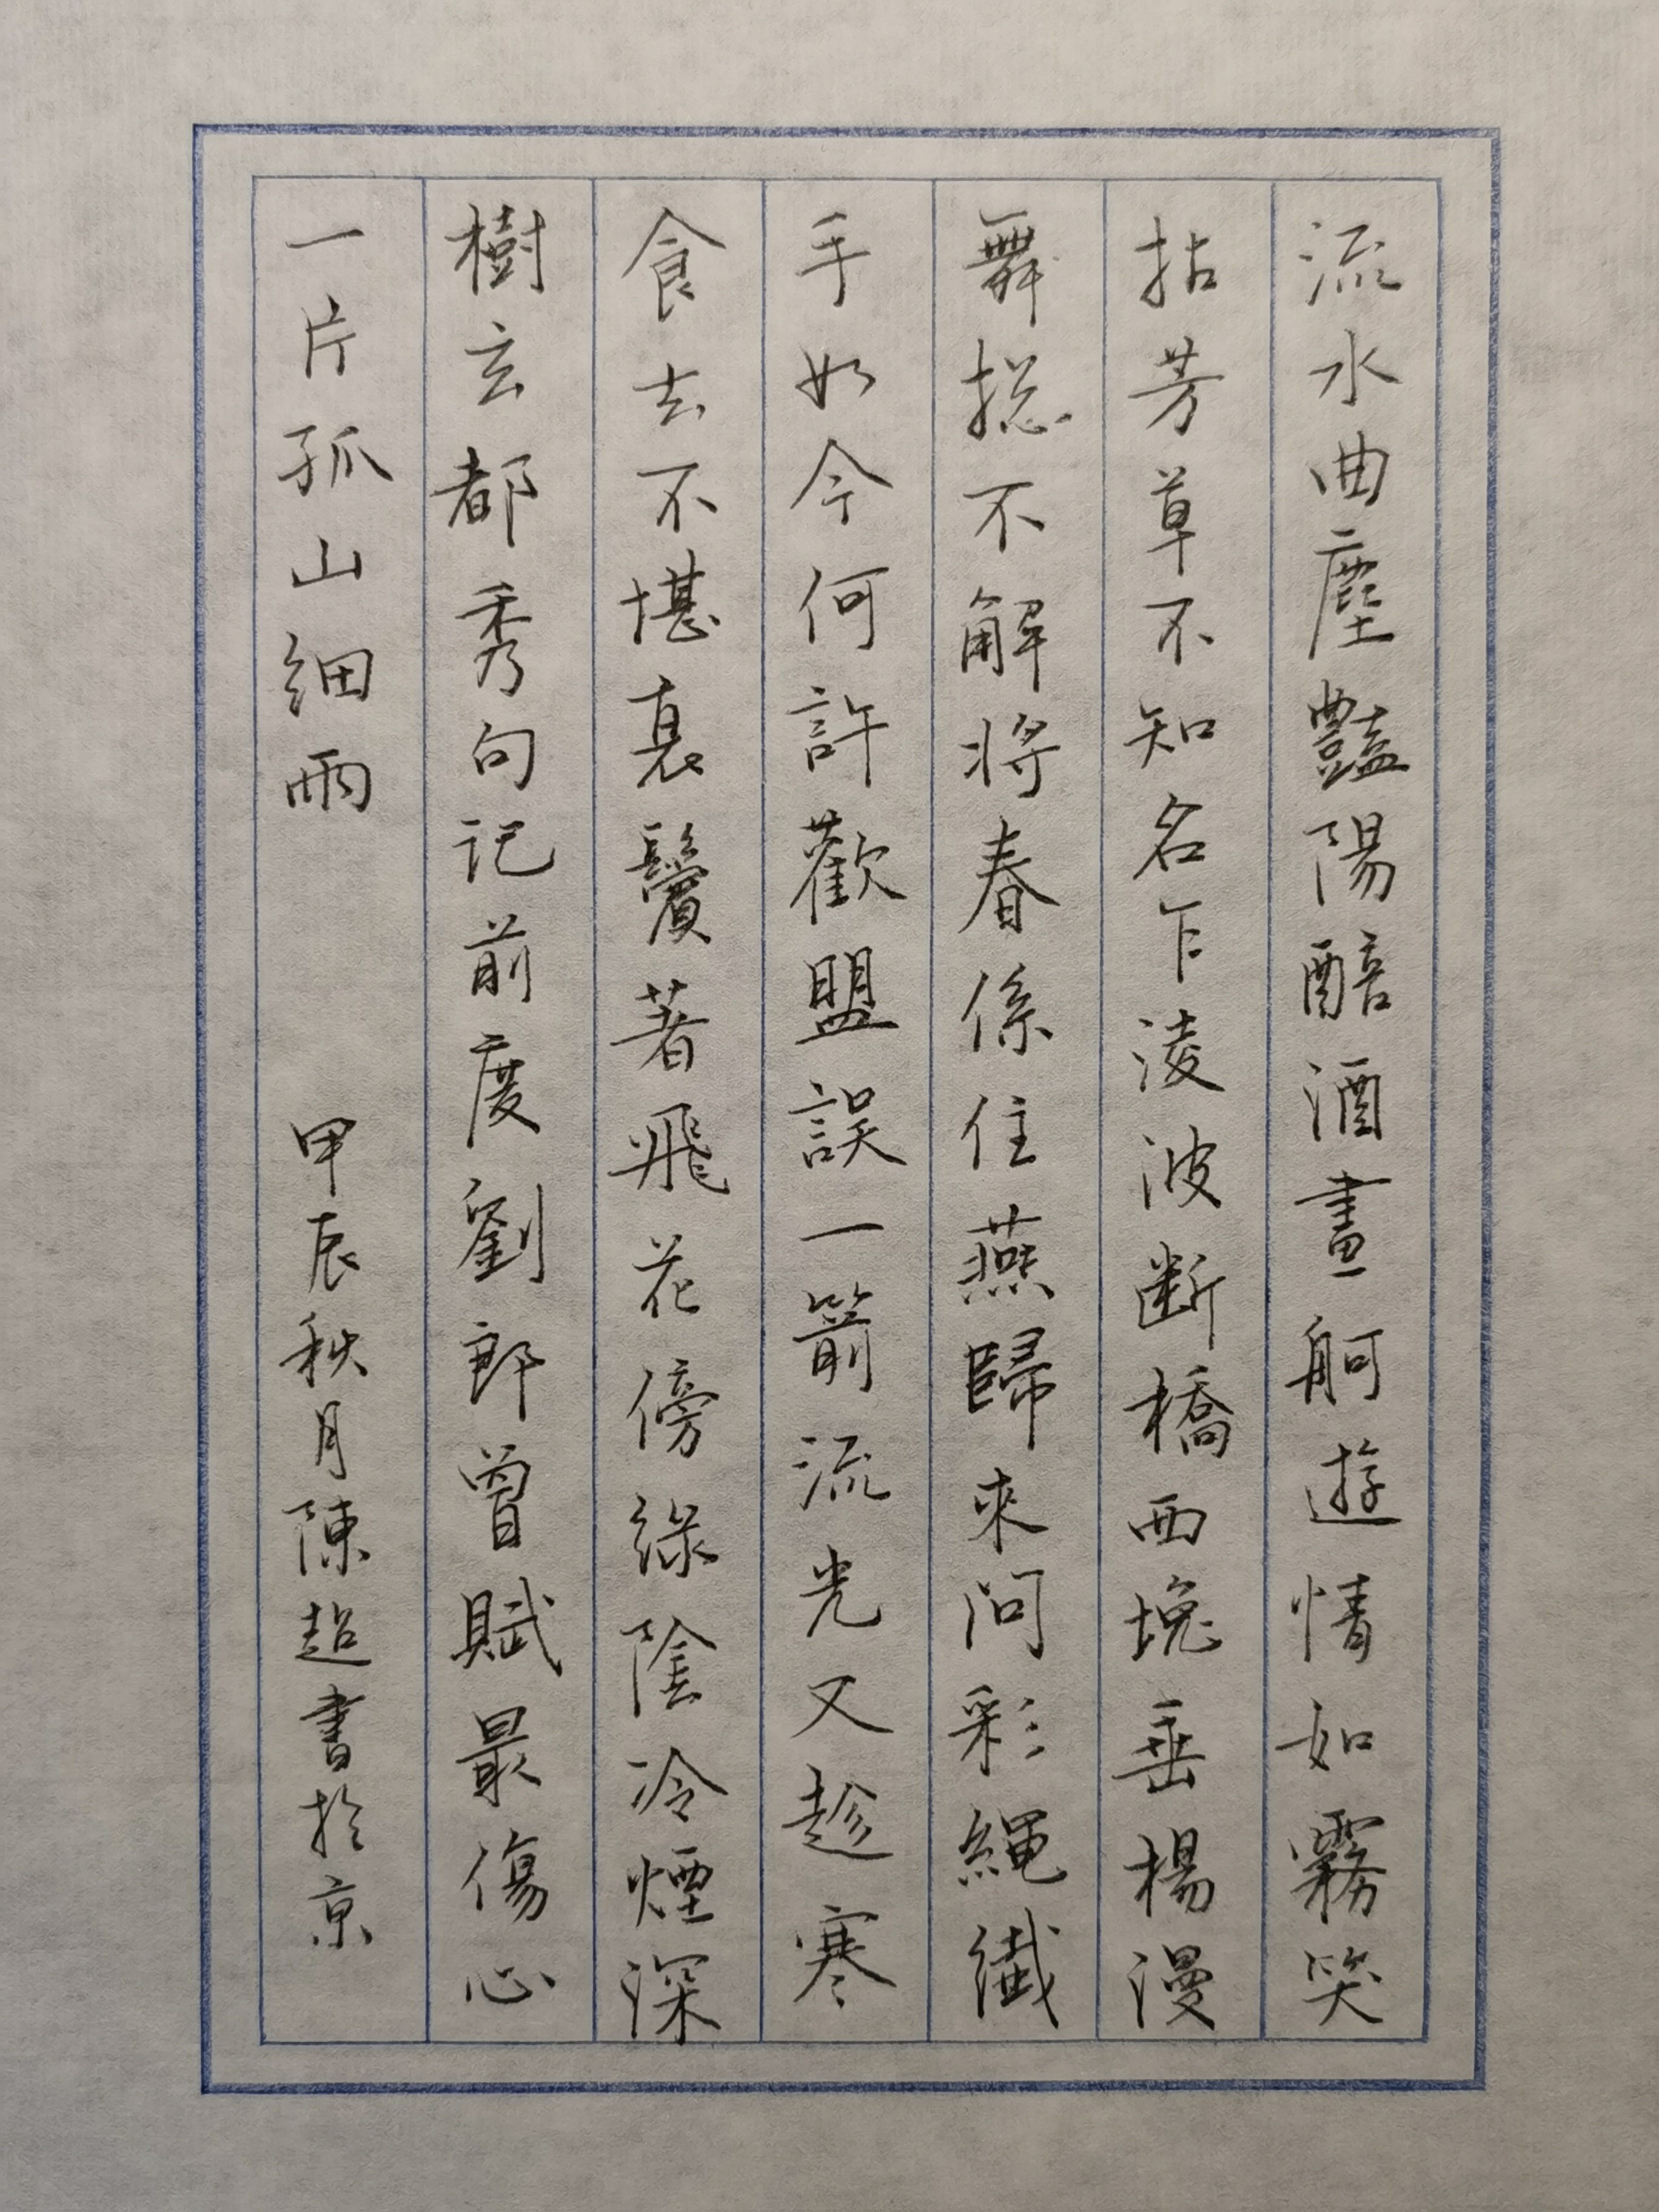 流水曲塵豔陽醅酒畫舸遊情如霧笑
拈芳草不知名乍淩波断橋西堍垂楊漫
舞總不解將春係住燕歸來問彩繩纖
手如今何許歡盟誤一箭流光又趁寒
食去不堪衰鬢著飛花傍綠陰冷煙深
樹玄都秀句記前度劉郎曾賦最傷心
一片孤山細雨
甲辰秋月陳超書於京